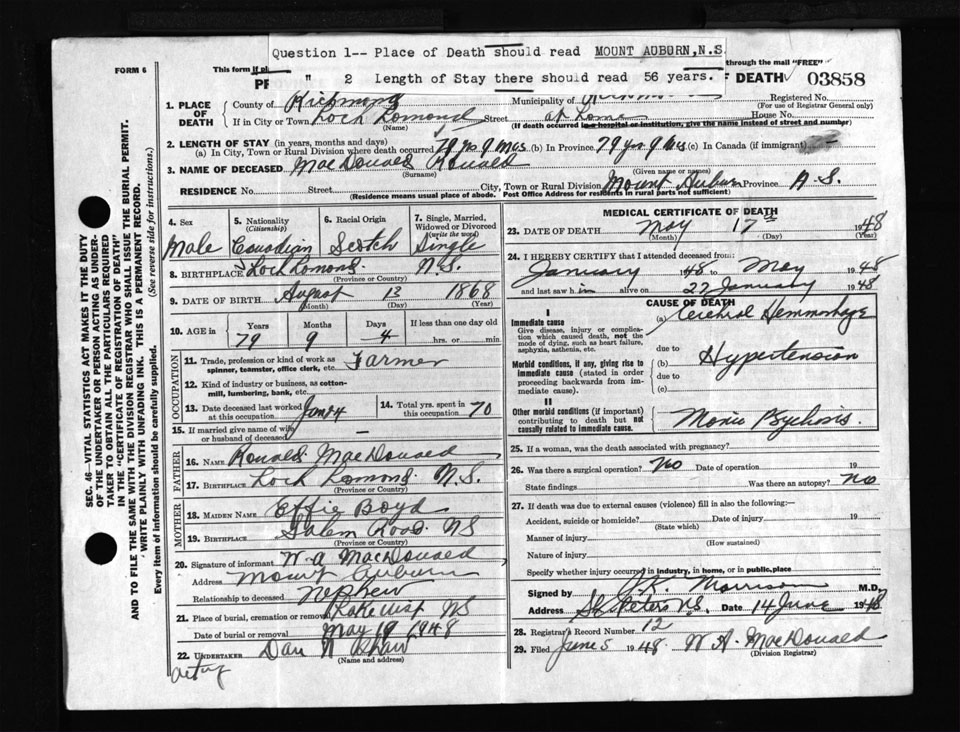 Question 1-- Place of Death should read MOUNT AUBURN,N.S.
" 2 Length of Stay there should read 56 years.
FORM 6
This form if pl
through the mail "FREE"
F DEATH 03858
1. PLACE OF DEATH
County of Richmond Municipality of
Registered No.
(For use of Registrar General only)
If in City or Town Loch Lomond Street at home House No.
(Name) (If death occurred in a hospital or institution, give the name instead of street and number)
2. LENGTH OF STAY (in years, months and days)
(a) In City, Town or Rural Division where death occurred 79 yrs 9 Mos (b) In Province 79 yrs 9 Mos (c) In Canada (if immigrant)
3. NAME OF DECEASED MacDonald Ronald
(Surname) (Given name or names)
RESIDENCE No. Street City, Town or Rural Division Mount Auburn Province N.S.
(Residence means usual place of abode. Post Office Address for residents in rural parts not sufficient)
4. Sex 5. Nationality (Citizenship) 6. Racial Origin 7. Single, Married, Widowed or Divorced (write the word)
Male Canadian Scotch Single
8. BIRTHPLACE Loch Lomond N.S.
(Province or Country)
9. DATE OF BIRTH August 13 1868
(Month) (Day) (Year)
10. AGE in Years Months Days If less than one day old
79 9 4 hrs. or min.
OCCUPATION
11. Trade, profession or kind of work as spinner, teamster, office clerk, etc. Farmer
12. Kind of industry or business, as cotton-mill, lumbering, bank, etc.
13. Date deceased last worked at this occupation 14. Total yrs. spent in this occupation 70
15. If married give name of wife or husband of deceased —
FATHER
16. NAME Ronald MacDonald
17. BIRTHPLACE Loch Lomond N.S.
(Province or Country)
MOTHER
18. MAIDEN NAME Effie Boyd
19. BIRTHPLACE Salem Road NS
(Province or Country)
20. Signature of informant W. A. MacDonald
Address Mount Auburn
Relationship to deceased Nephew
21. Place of burial, cremation or removal NS
Date of burial or removal May 19 1948
22. UNDERTAKER Dan
(Name and address)
MEDICAL CERTIFICATE OF DEATH
23. DATE OF DEATH May 17th 1948
(Month) (Day) (Year)
24. I HEREBY CERTIFY that I attended deceased from:
January 1948 to May 1948
and last saw him alive on 22 January 1948
CAUSE OF DEATH
I
Immediate cause
Give disease, injury or complication which caused death, not the mode of dying, such as heart failure, asphyxia, asthenia, etc.
(a) Cerebral Hemmorhage
due to
Morbid conditions, if any, giving rise to immediate cause (stated in order proceeding backwards from immediate cause).
(b) Hypertension
due to
(c)
II
Other morbid conditions (if important) contributing to death but not causally related to immediate cause.
Psychosis.
25. If a woman, was the death associated with pregnancy?
26. Was there a surgical operation? No Date of operation 19
State findings Was there an autopsy? No
27. If death was due to external causes (violence) fill in also the following:—
Accident, suicide or homicide? Date of injury 19
(State which)
Manner of injury
(How sustained)
Nature of injury
Specify whether injury occurred in industry, in home, or in public place
Signed by J.K. Morrison M.D.
Address St. Peters N.S. Date 14 June 1948
28. Registrar's Record Number 12
29. Filed June 5 1948 W. A. MacDonald
(Division Registrar)
SEC. 46 - VITAL STATISTICS ACT MAKES IT THE DUTY
OF THE UNDERTAKER OR PERSON ACTING AS UNDERTAKER
TO OBTAIN ALL THE PARTICULARS REQUIRED
IN THE "CERTIFICATE OF REGISTRATION OF DEATH"
AND TO FILE THE SAME WITH THE DIVISION REGISTRAR WHO SHALL ISSUE THE BURIAL PERMIT.
WRITE PLAINLY WITH UNFADING INK. THIS IS A PERMANENT RECORD.
Every item of information should be carefully supplied. (See reverse side for instructions.)